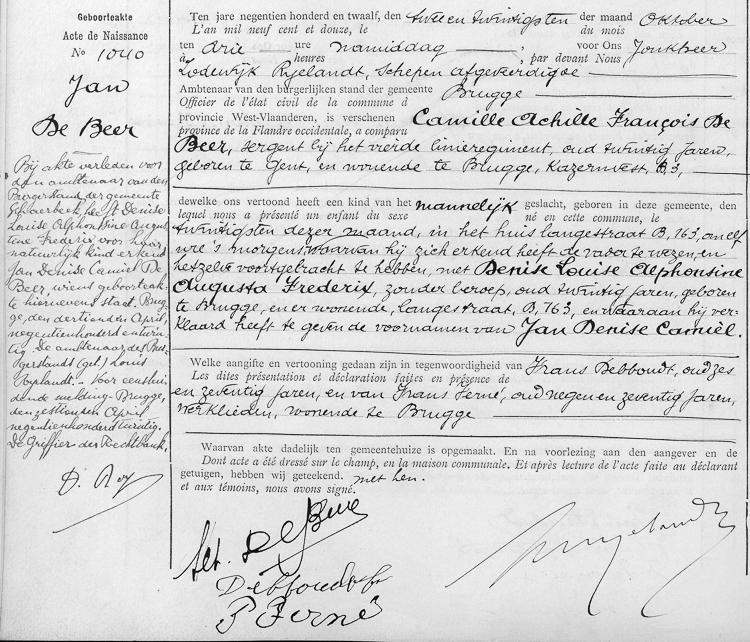 Geboorteakte
Acte de Naissance
No 1040
Jan
De Beer
Bij akte verleden voor
den ambtenaar van den
Burgerstand der gemeente
heeft Denise
Louise Alphonsine Augus-
tine Frederix voor haar
natuurlijk kind erkend
Jan Denise Camiel De
Beer, wiens geboorteak-
te hiernevens staat. Brug-
ge, den dertienden April,
negentienhonderd entwin-
tig. De ambtenaar des Bur-
gerstands (get.) Louis
Ryelandt. - Voor eenslui-
dende melding. Brugge,
den zestienden April
negentienhonderd twintig.
De Griffier der Rechtbank,
D. Roy
Ten jare negentien honderd en twaalf, den twee en twintigsten der maand Oktober
L'an mil neuf cent et douze, le du mois
ten drie ure namiddag voor Ons Jonkheer
à heures , par devant Nous
Lodewijk Ryelandt, Schepen afgeveerdigde
Ambtenaar van den burgerlijken stand der gemeente Brugge
Officier de l'état civil de la commune d
provincie West-Vlaanderen, is verschenen Camille Achille François De
province de la Flandre occidentale, a comparu
Beer, sergent bij het vierde linieregiment, oud twintig jaren,
geboren te Gent, en wonende te Brugge, Kazernvest, B, 3,
dewelke ons vertoond heeft een kind van het mannelijk geslacht, geboren in deze gemeente, den
lequel nous a présenté un enfant du sexe né en cette commune, le
twintigsten dezer maand, in het huis langestraat B, 763, om elf
ure 's morgens, waarvan hij zich erkend heeft de vader te wezen, en
hetzelve voortgebracht te hebben, met Denise Louise Alphonsine
Augusta Frederix, zonder beroep, oud twintig jaren, geboren
te Brugge, en er wonende, langestraat, B, 763, en waaraan hij ver-
klaard heeft te geven de voornamen van Jan Denise Camiël.
Welke aangifte en vertooning gedaan zijn in tegenwoordigheid van Frans Debbondt, oud zes
Les dites présentation et déclaration faites en présence de
en zeventig jaren, en van Frans Ferné, oud negen en zeventig jaren,
werklieden, wonende te Brugge
Waarvan akte dadelijk ten gemeentehuize is opgemaakt. En na voorlezing aan den aangever en de
Dont acte a été dressé sur le champ, en la maison communale. Et après lecture de l'acte faite au déclarant
getuigen, hebben wij geteekend. met hen.
et aux témoins, nous avons signé.
De Beer
Debbondt
Ferné
Ryelandt